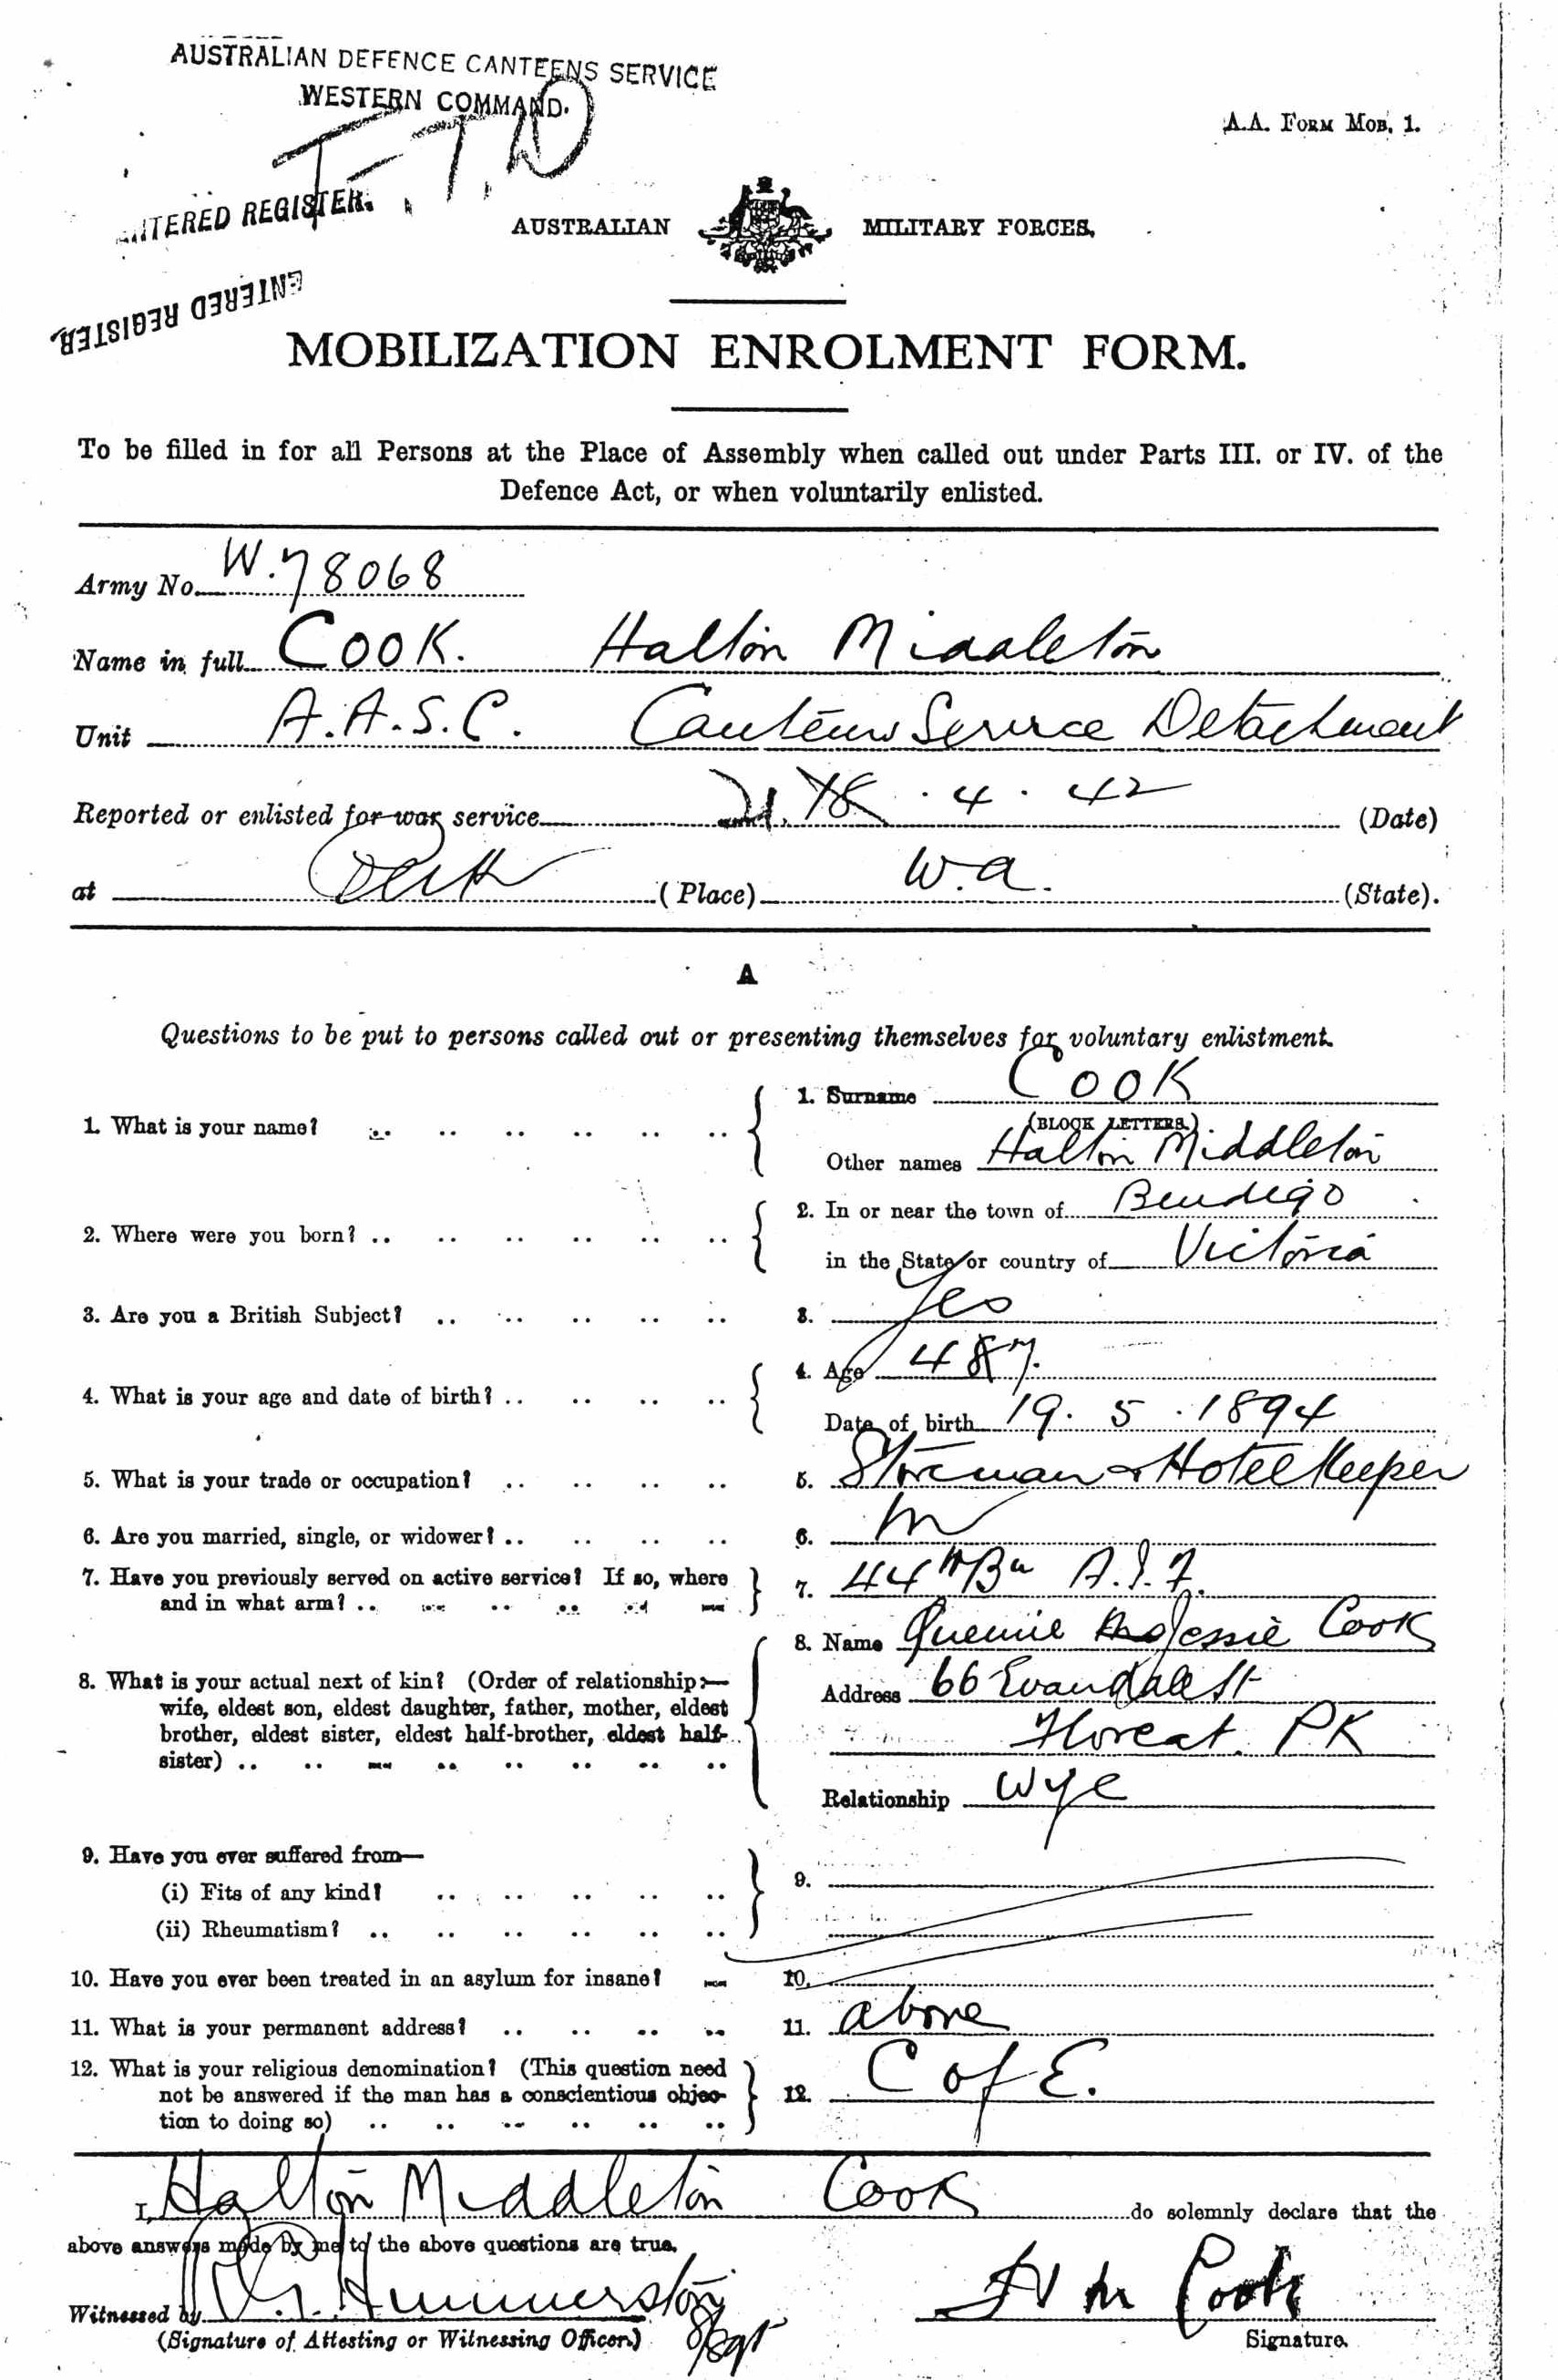 AUSTRALIAN DEFENCE CANTEENS SERVICE
WESTERN COMMAND.
A.A. FORM MOB. 1.
ENTERED REGISTER.
AUSTRALIAN MILITARY FORCES.
ENTERED REGISTER.
MOBILIZATION ENROLMENT FORM.
To be filled in for all Persons at the Place of Assembly when called out under Parts III. or IV. of the
Defence Act, or when voluntarily enlisted.
Army No. W.78068
Name in full COOK. Halton Middleton
Unit A.A.S.C. Canteens Service Detachment
Reported or enlisted for war service 21. 18 . 4 . 42 (Date)
at Perth (Place) W.A. (State).
A
Questions to be put to persons called out or presenting themselves for voluntary enlistment.
1. What is your name? 1. Surname COOK
(BLOCK LETTERS.)
Other names Halton Middleton
2. Where were you born? 2. In or near the town of Bendigo
in the State or country of Victoria
3. Are you a British Subject? 3. Yes
4. What is your age and date of birth? 4. Age 487.
Date of birth 19. 5 . 1894
5. What is your trade or occupation? 5. Storeman & Hotel Keeper
6. Are you married, single, or widower? 6. M
7. Have you previously served on active service? If so, where
and in what arm? 7. 44th Bn A.I.F.
8. What is your actual next of kin? (Order of relationship:—
wife, eldest son, eldest daughter, father, mother, eldest
brother, eldest sister, eldest half-brother, eldest half-
sister)
8. Name Queenie Jessie Cook
Address 66 Evandale St
Floreat PK
Relationship Wife
9. Have you ever suffered from— 9.
(i) Fits of any kind?
(ii) Rheumatism?
10. Have you ever been treated in an asylum for insane? 10.
11. What is your permanent address? 11. above
12. What is your religious denomination? (This question need
not be answered if the man has a conscientious objec-
tion to doing so) 12. C of E.
I, Halton Middleton Cook do solemnly declare that the
above answers made by me to the above questions are true.
Witnessed by Hummerston Sgt
H M Cook
(Signature of Attesting or Witnessing Officer.) Signature.